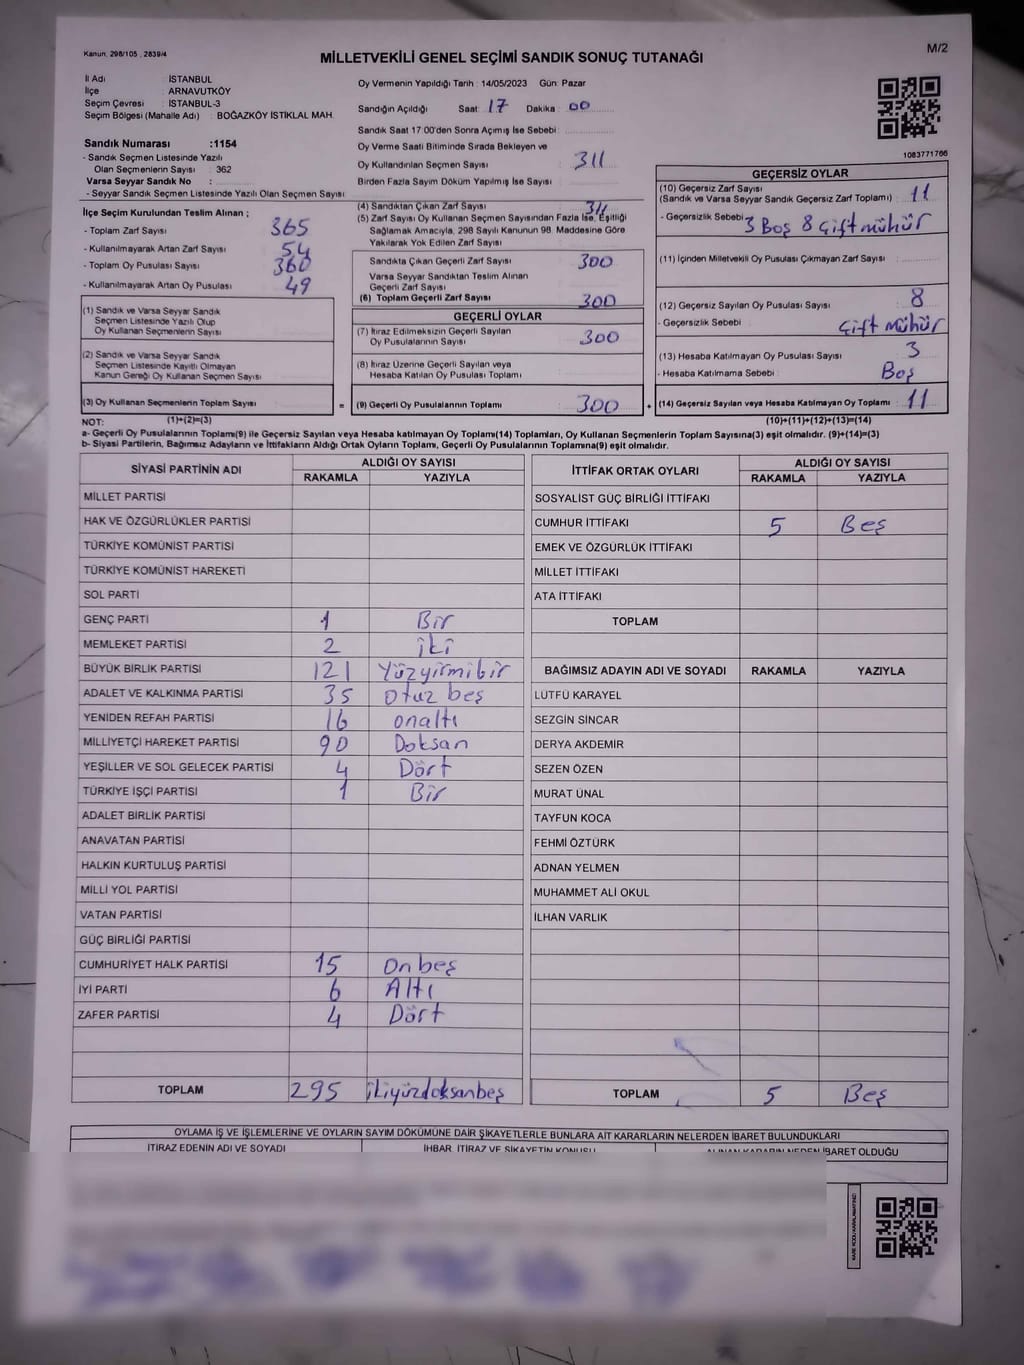 Kanun, 298/105 , 2839/4
M/2
MİLLETVEKİLİ GENEL SEÇİMİ SANDIK SONUÇ TUTANAĞI
İl Adı : İSTANBUL
İlçe : ARNAVUTKÖY
Seçim Çevresi : İSTANBUL-3
Seçim Bölgesi (Mahalle Adı) : BOĞAZKÖY İSTİKLAL MAH.
Sandık Numarası :1154
- Sandık Seçmen Listesinde Yazılı
Olan Seçmenlerin Sayısı : 362
Varsa Seyyar Sandık No :
- Seyyar Sandık Seçmen Listesinde Yazılı Olan Seçmen Sayısı
İlçe Seçim Kurulundan Teslim Alınan ;
- Toplam Zarf Sayısı 365
- Kullanılmayarak Artan Zarf Sayısı 54
- Toplam Oy Pusulası Sayısı 360
- Kullanılmayarak Artan Oy Pusulası 49
(1) Sandık ve Varsa Seyyar Sandık
Seçmen Listesinde Yazılı Olup
Oy Kullanan Seçmenlerin Sayısı :
(2) Sandık ve Varsa Seyyar Sandık
Seçmen Listesinde Kayıtlı Olmayan
Kanun Gereği Oy Kullanan Seçmen Sayısı :
(3) Oy Kullanan Seçmenlerin Toplam Sayısı :
Oy Vermenin Yapıldığı Tarih : 14/05/2023 Gün: Pazar
Sandığın Açıldığı Saat: 17 Dakika : 00
Sandık Saat 17:00'den Sonra Açımış İse Sebebi :
Oy Verme Saati Bitiminde Sırada Bekleyen ve
Oy Kullandırılan Seçmen Sayısı : 311
Birden Fazla Sayım Döküm Yapılmış İse Sayısı :
(4) Sandıktan Çıkan Zarf Sayısı : 311
(5) Zarf Sayısı Oy Kullanan Seçmen Sayısından Fazla İse, Eşitliği
Sağlamak Amacıyla, 298 Sayılı Kanunun 98. Maddesine Göre
Yakılarak Yok Edilen Zarf Sayısı :
Sandıkta Çıkan Geçerli Zarf Sayısı : 300
Varsa Seyyar Sandıktan Teslim Alınan
Geçerli Zarf Sayısı :
(6) Toplam Geçerli Zarf Sayısı : 300
GEÇERLİ OYLAR
(7) İtiraz Edilmeksizin Geçerli Sayılan
Oy Pusulalarının Sayısı : 300
(8) İtiraz Üzerine Geçerli Sayılan veya
Hesaba Katılan Oy Pusulası Toplamı :
= (9) Geçerli Oy Pusulalarının Toplamı : 300
1083771766
GEÇERSİZ OYLAR
(10) Geçersiz Zarf Sayısı
(Sandık ve Varsa Seyyar Sandık Geçersiz Zarf Toplamı) : 11
- Geçersizlik Sebebi : 3 Boş 8 Çift mühür
(11) İçinden Milletvekili Oy Pusulası Çıkmayan Zarf Sayısı :
(12) Geçersiz Sayılan Oy Pusulası Sayısı : 8
- Geçersizlik Sebebi : Çift Mühür
(13) Hesaba Katılmayan Oy Pusulası Sayısı : 3
- Hesaba Katılmama Sebebi : Boş
+ (14) Geçersiz Sayılan veya Hesaba Katılmayan Oy Toplamı : 11
NOT: (1)+(2)=(3) (10)+(11)+(12)+(13)=(14)
a- Geçerli Oy Pusulalarının Toplamı(9) ile Geçersiz Sayılan veya Hesaba katılmayan Oy Toplamı(14) Toplamları, Oy Kullanan Seçmenlerin Toplam Sayısına(3) eşit olmalıdır. (9)+(14)=(3)
b- Siyasi Partilerin, Bağımsız Adayların ve İttifakların Aldığı Ortak Oyların Toplamı, Geçerli Oy Pusulalarının Toplamına(9) eşit olmalıdır.
SİYASİ PARTİNİN ADI ALDIĞI OY SAYISI
RAKAMLA YAZIYLA
MİLLET PARTİSİ
HAK VE ÖZGÜRLÜKLER PARTİSİ
TÜRKİYE KOMÜNİST PARTİSİ
TÜRKİYE KOMÜNİST HAREKETİ
SOL PARTİ
GENÇ PARTİ 1 Bir
MEMLEKET PARTİSİ 2 iki
BÜYÜK BİRLİK PARTİSİ 121 Yüzyirmibir
ADALET VE KALKINMA PARTİSİ 35 Otuz beş
YENİDEN REFAH PARTİSİ 16 onaltı
MİLLİYETÇİ HAREKET PARTİSİ 90 Doksan
YEŞİLLER VE SOL GELECEK PARTİSİ 4 Dört
TÜRKİYE İŞÇİ PARTİSİ 1 Bir
ADALET BİRLİK PARTİSİ
ANAVATAN PARTİSİ
HALKIN KURTULUŞ PARTİSİ
MİLLİ YOL PARTİSİ
VATAN PARTİSİ
GÜÇ BİRLİĞİ PARTİSİ
CUMHURİYET HALK PARTİSİ 15 Onbeş
İYİ PARTİ 6 Altı
ZAFER PARTİSİ 4 Dört
TOPLAM 295 ikiyüzdoksanbeş
İTTİFAK ORTAK OYLARI ALDIĞI OY SAYISI
RAKAMLA YAZIYLA
SOSYALİST GÜÇ BİRLİĞİ İTTİFAKI
CUMHUR İTTİFAKI 5 Beş
EMEK VE ÖZGÜRLÜK İTTİFAKI
MİLLET İTTİFAKI
ATA İTTİFAKI
TOPLAM
BAĞIMSIZ ADAYIN ADI VE SOYADI RAKAMLA YAZIYLA
LÜTFÜ KARAYEL
SEZGİN SİNCAR
DERYA AKDEMİR
SEZEN ÖZEN
MURAT ÜNAL
TAYFUN KOCA
FEHMİ ÖZTÜRK
ADNAN YELMEN
MUHAMMET ALİ OKUL
İLHAN VARLIK
TOPLAM 5 Beş
OYLAMA İŞ VE İŞLEMLERİNE VE OYLARIN SAYIM DÖKÜMÜNE DAİR ŞİKAYETLERLE BUNLARA AİT KARARLARIN NELERDEN İBARET BULUNDUKLARI
İTİRAZ EDENİN ADI VE SOYADI İHBAR, İTİRAZ VE ŞİKAYETİN KONUSU ALINAN KARARIN NEDEN İBARET OLDUĞU